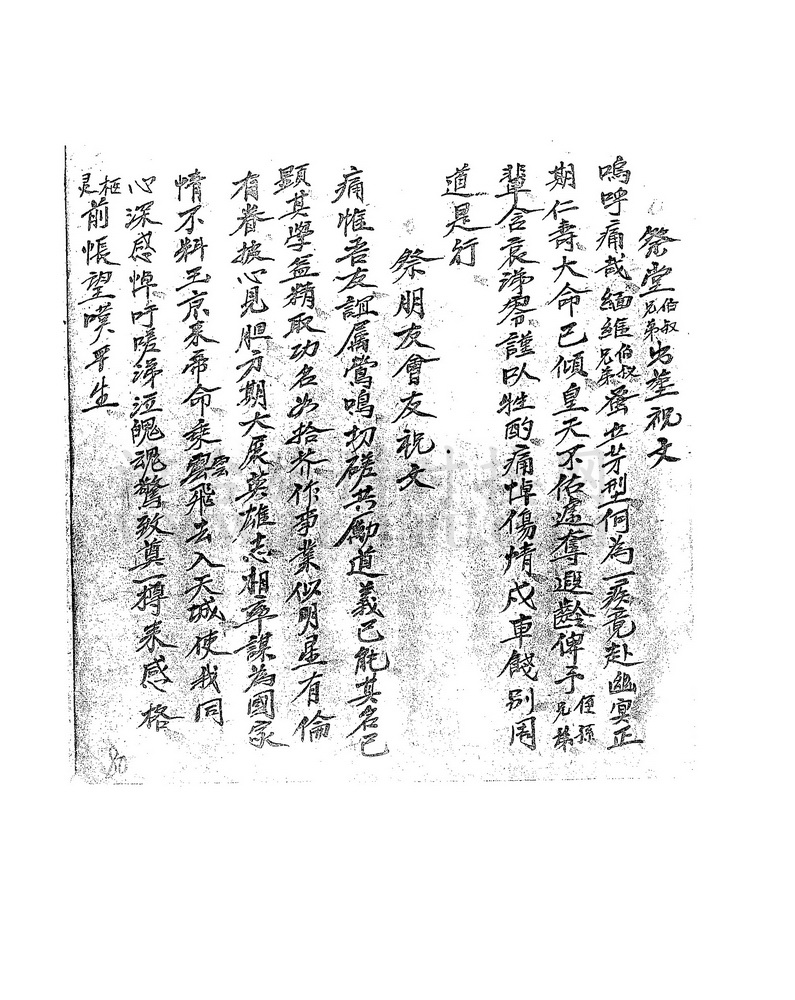 祭堂伯叔兄弟出堂祝文
嗚呼痛哉緬維伯叔兄弟蚤世芽型何為一疾竟赴幽冥正
期仁壽大命已傾皇天不佑遽奪遐齡俾予侄孫兄弟
輩含哀涕零謹以牲酌痛悼傷情戍車餞別用
道是行
祭朋友會友祝文
痛惟吾友誼属鶯鳴切磋共勵道義已能其名已
顕其學益精取功名如拾芥作事業似明星有倫
有眷披心見胆方期大展英雄志相率謀為國家
情不料玉京来帝命乘雲飛去入天城使我同
心深感悼吁嗟涕泣魄魂驚致奠一樽来感格
灵柩前悵望嘆平生
80